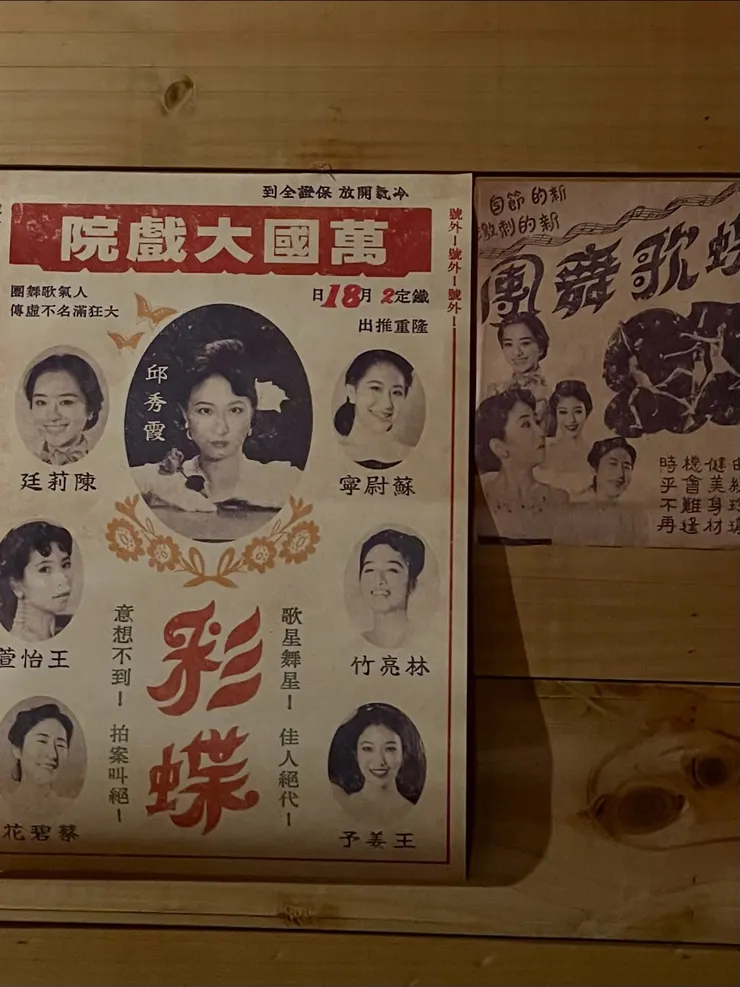 冷氣開放 保證全到
萬國大戲院
號外!號外!號外!
鐵定2月18日
隆重推出
人氣歌舞團
大狂滿名不虛傳
邱秀霞
蘇尉寧
陳莉廷
林亮竹
王怡萱
王姜予
蔡碧花
歌星舞星! 佳人絕代!
彩蝶
意想不到! 拍案叫絕!
新的節目
新的刺激
蝶歌舞團
健美身材
機會難逢
時乎不再